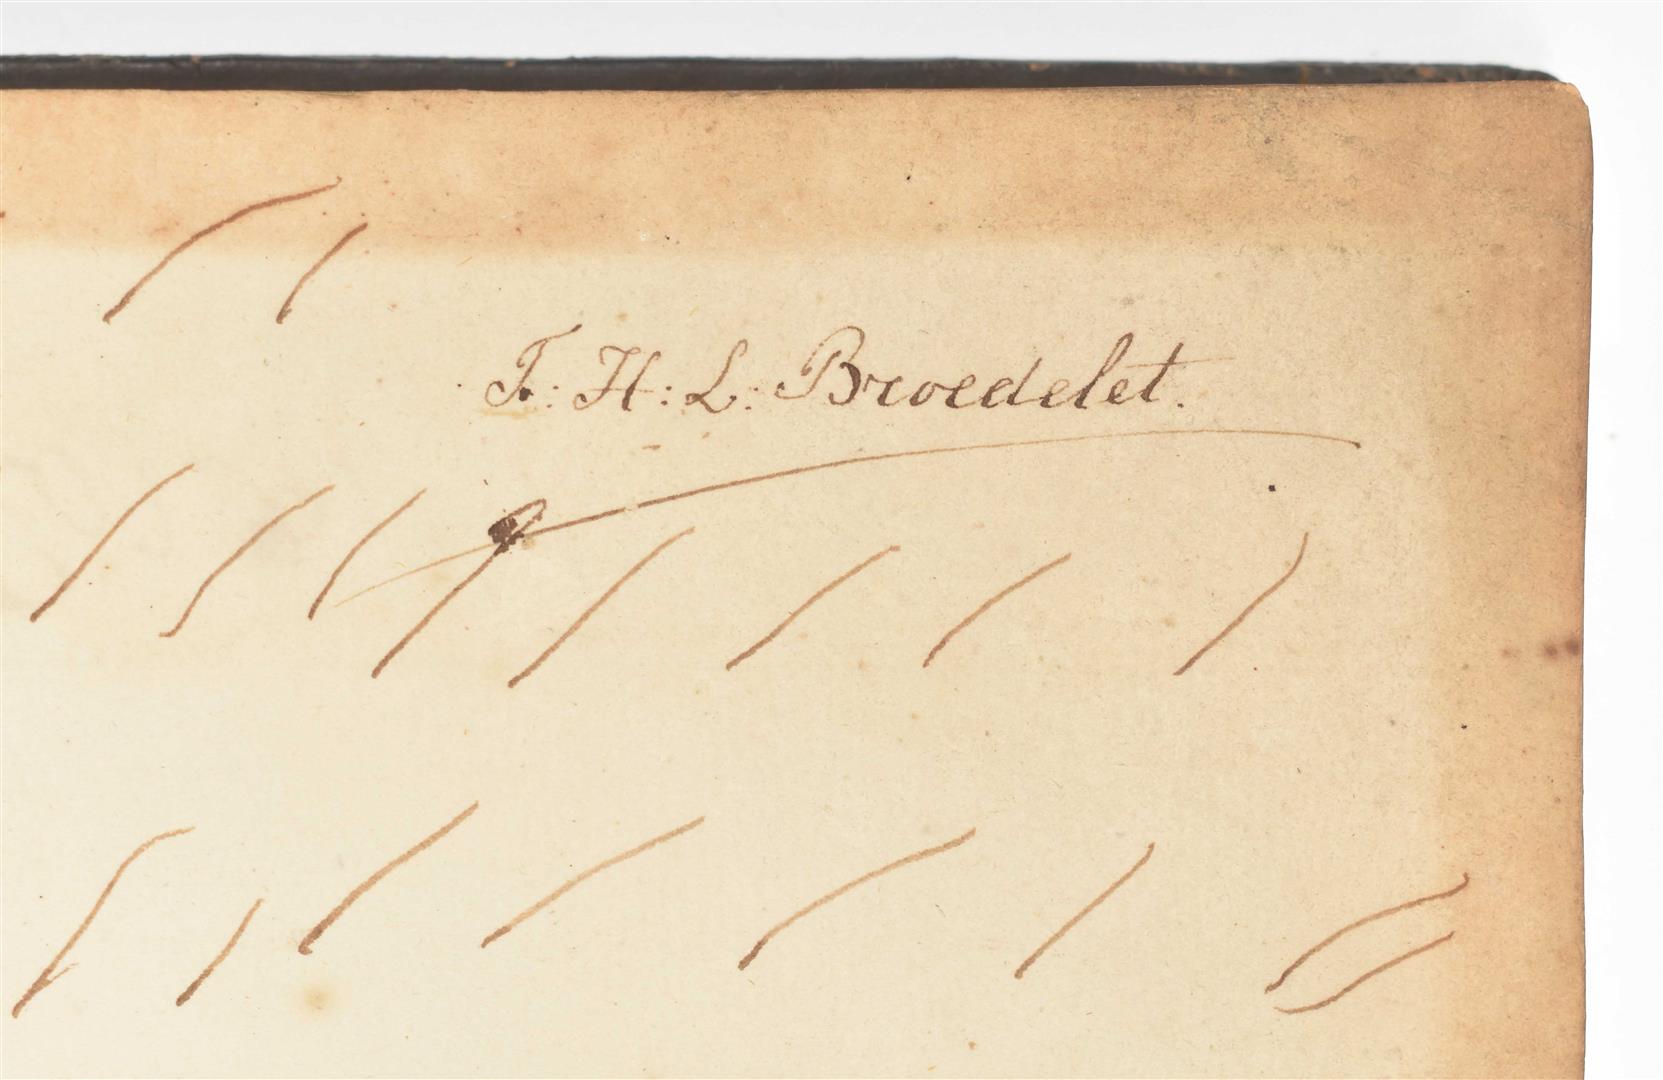 F: H: L: Broedelet.